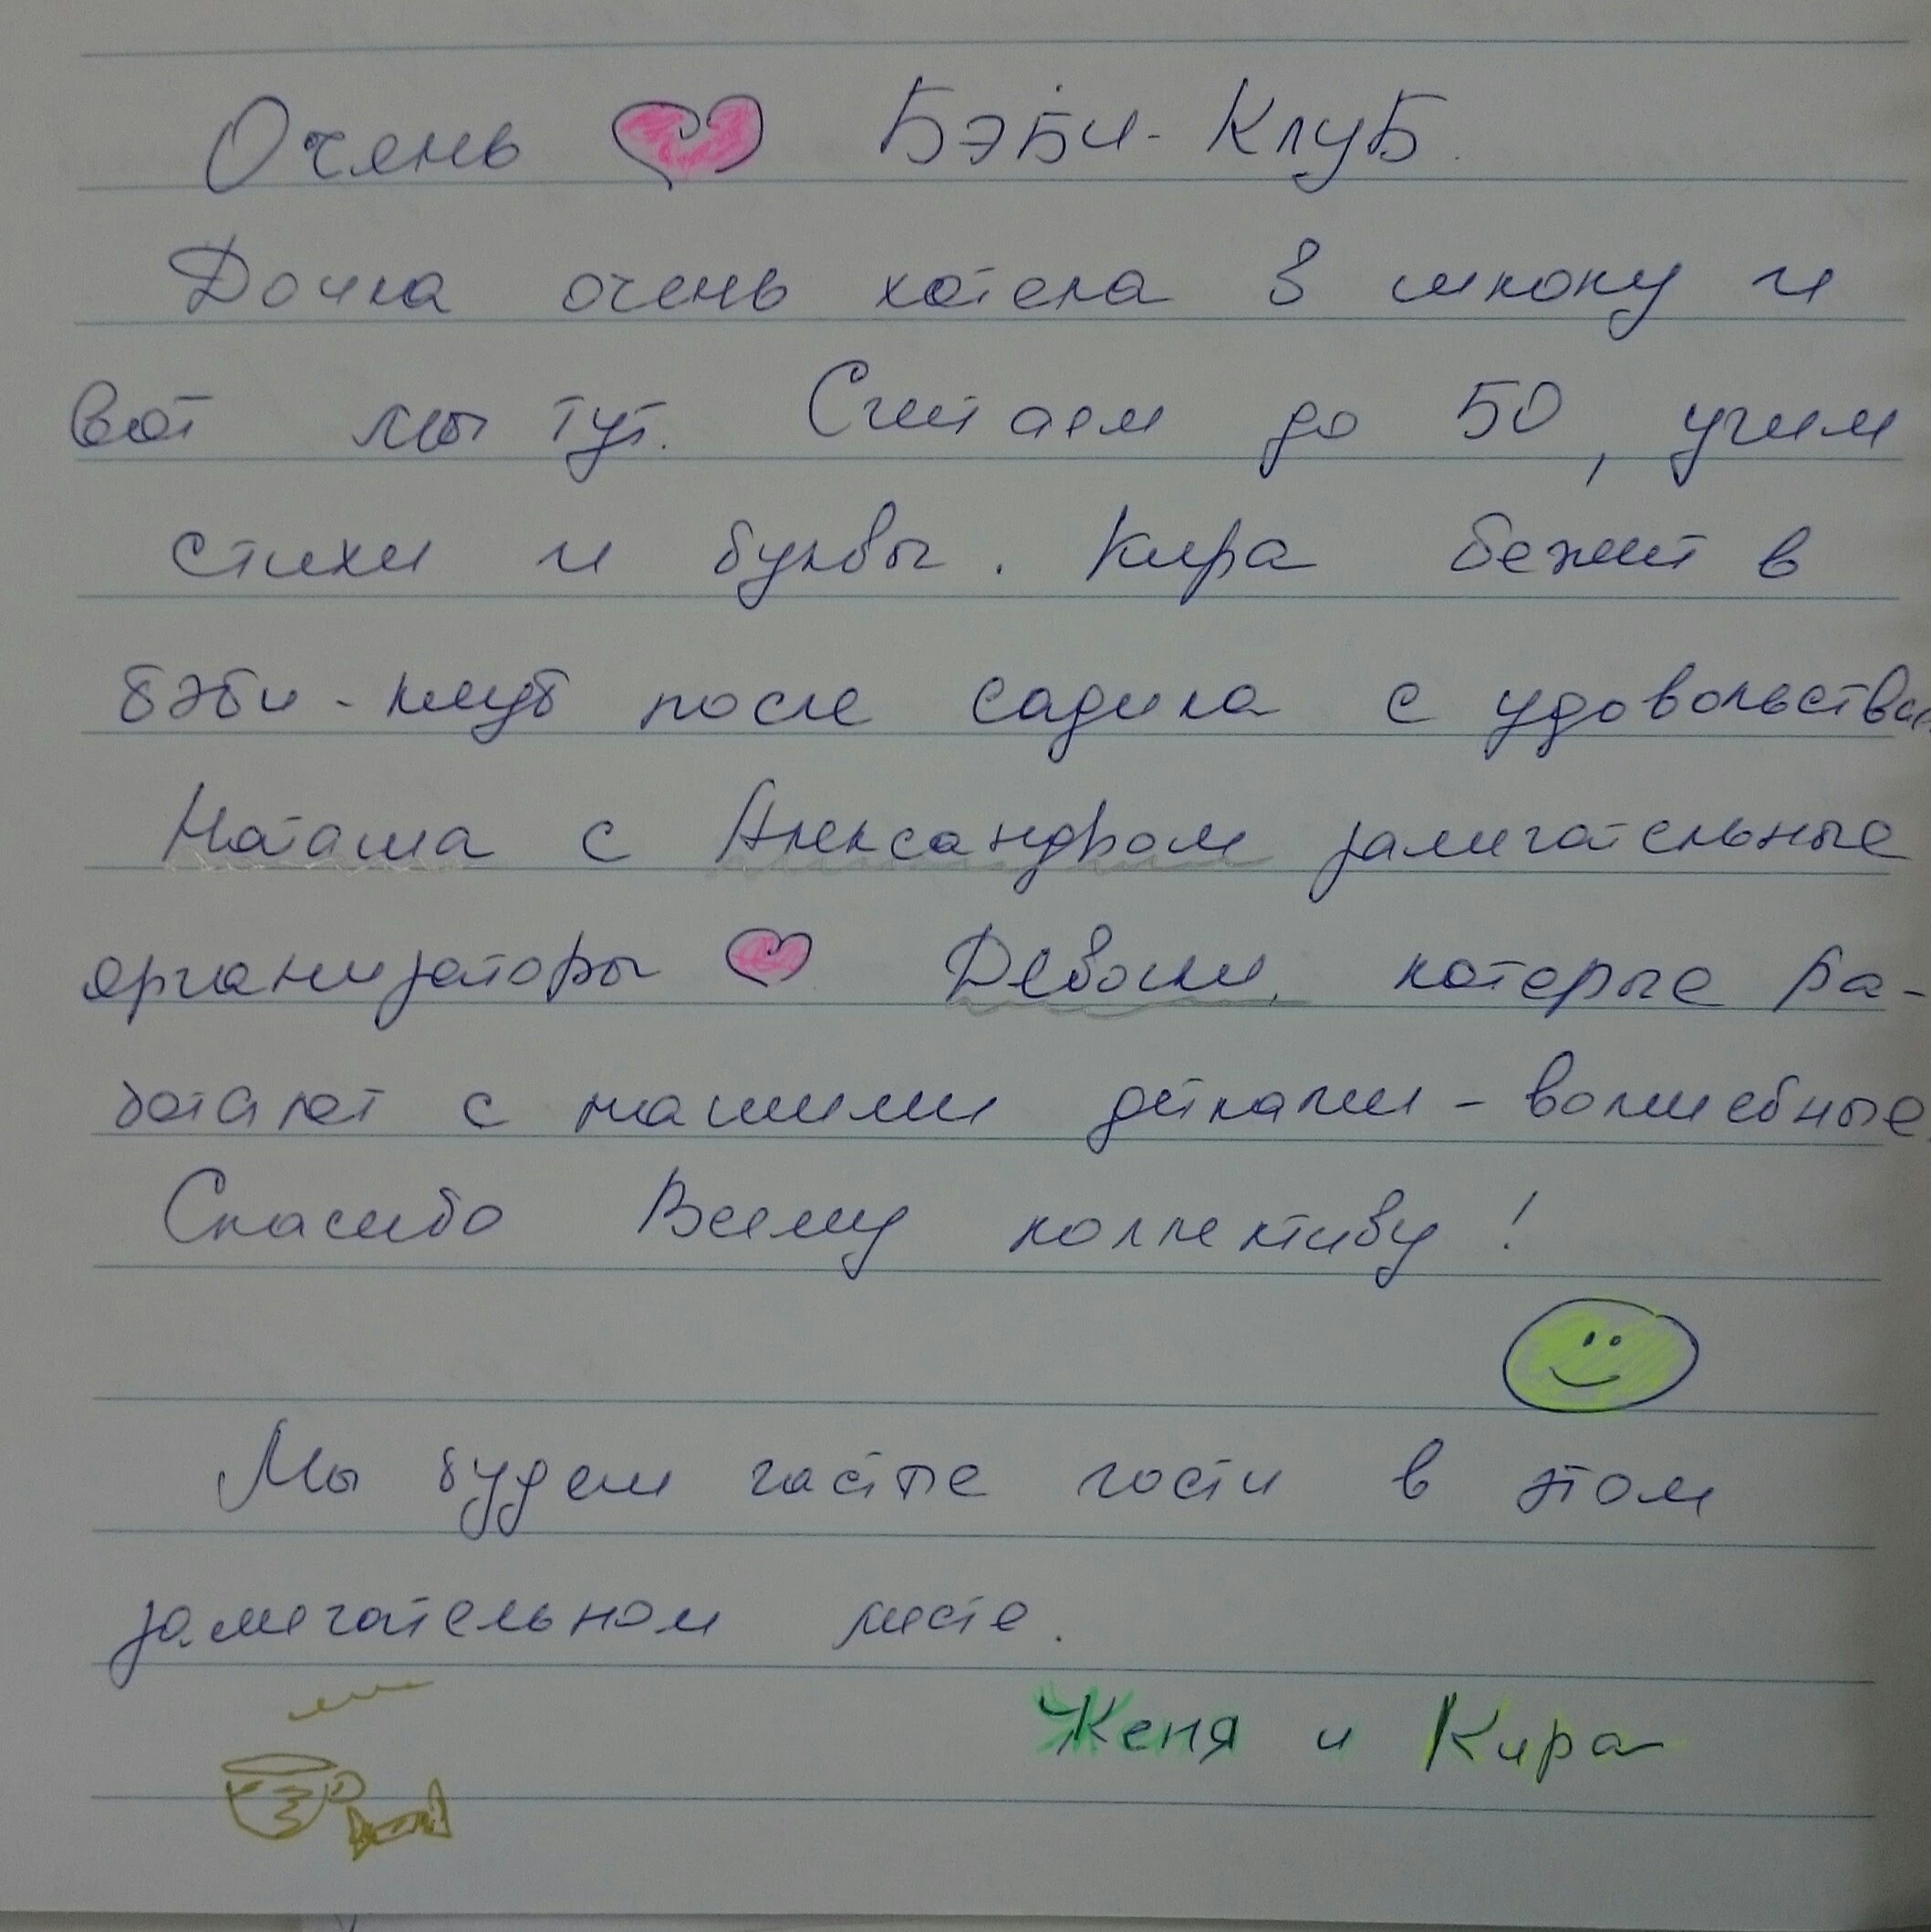 Очень БэБи-КлуБ.
Дочка очень хотела в школу и
вот мы тут. Считаем до 50, учим
стихи и буквы. Кира бежит в
бэби-клуб после садика с
Наташа с Александром замечательные
организаторы Девочки, которые ра-
ботают с нашими детками - волшебные.
Спасибо Всему коллективу!
Мы будем частые гости в этом
замечательном месте.
Женя и Кира